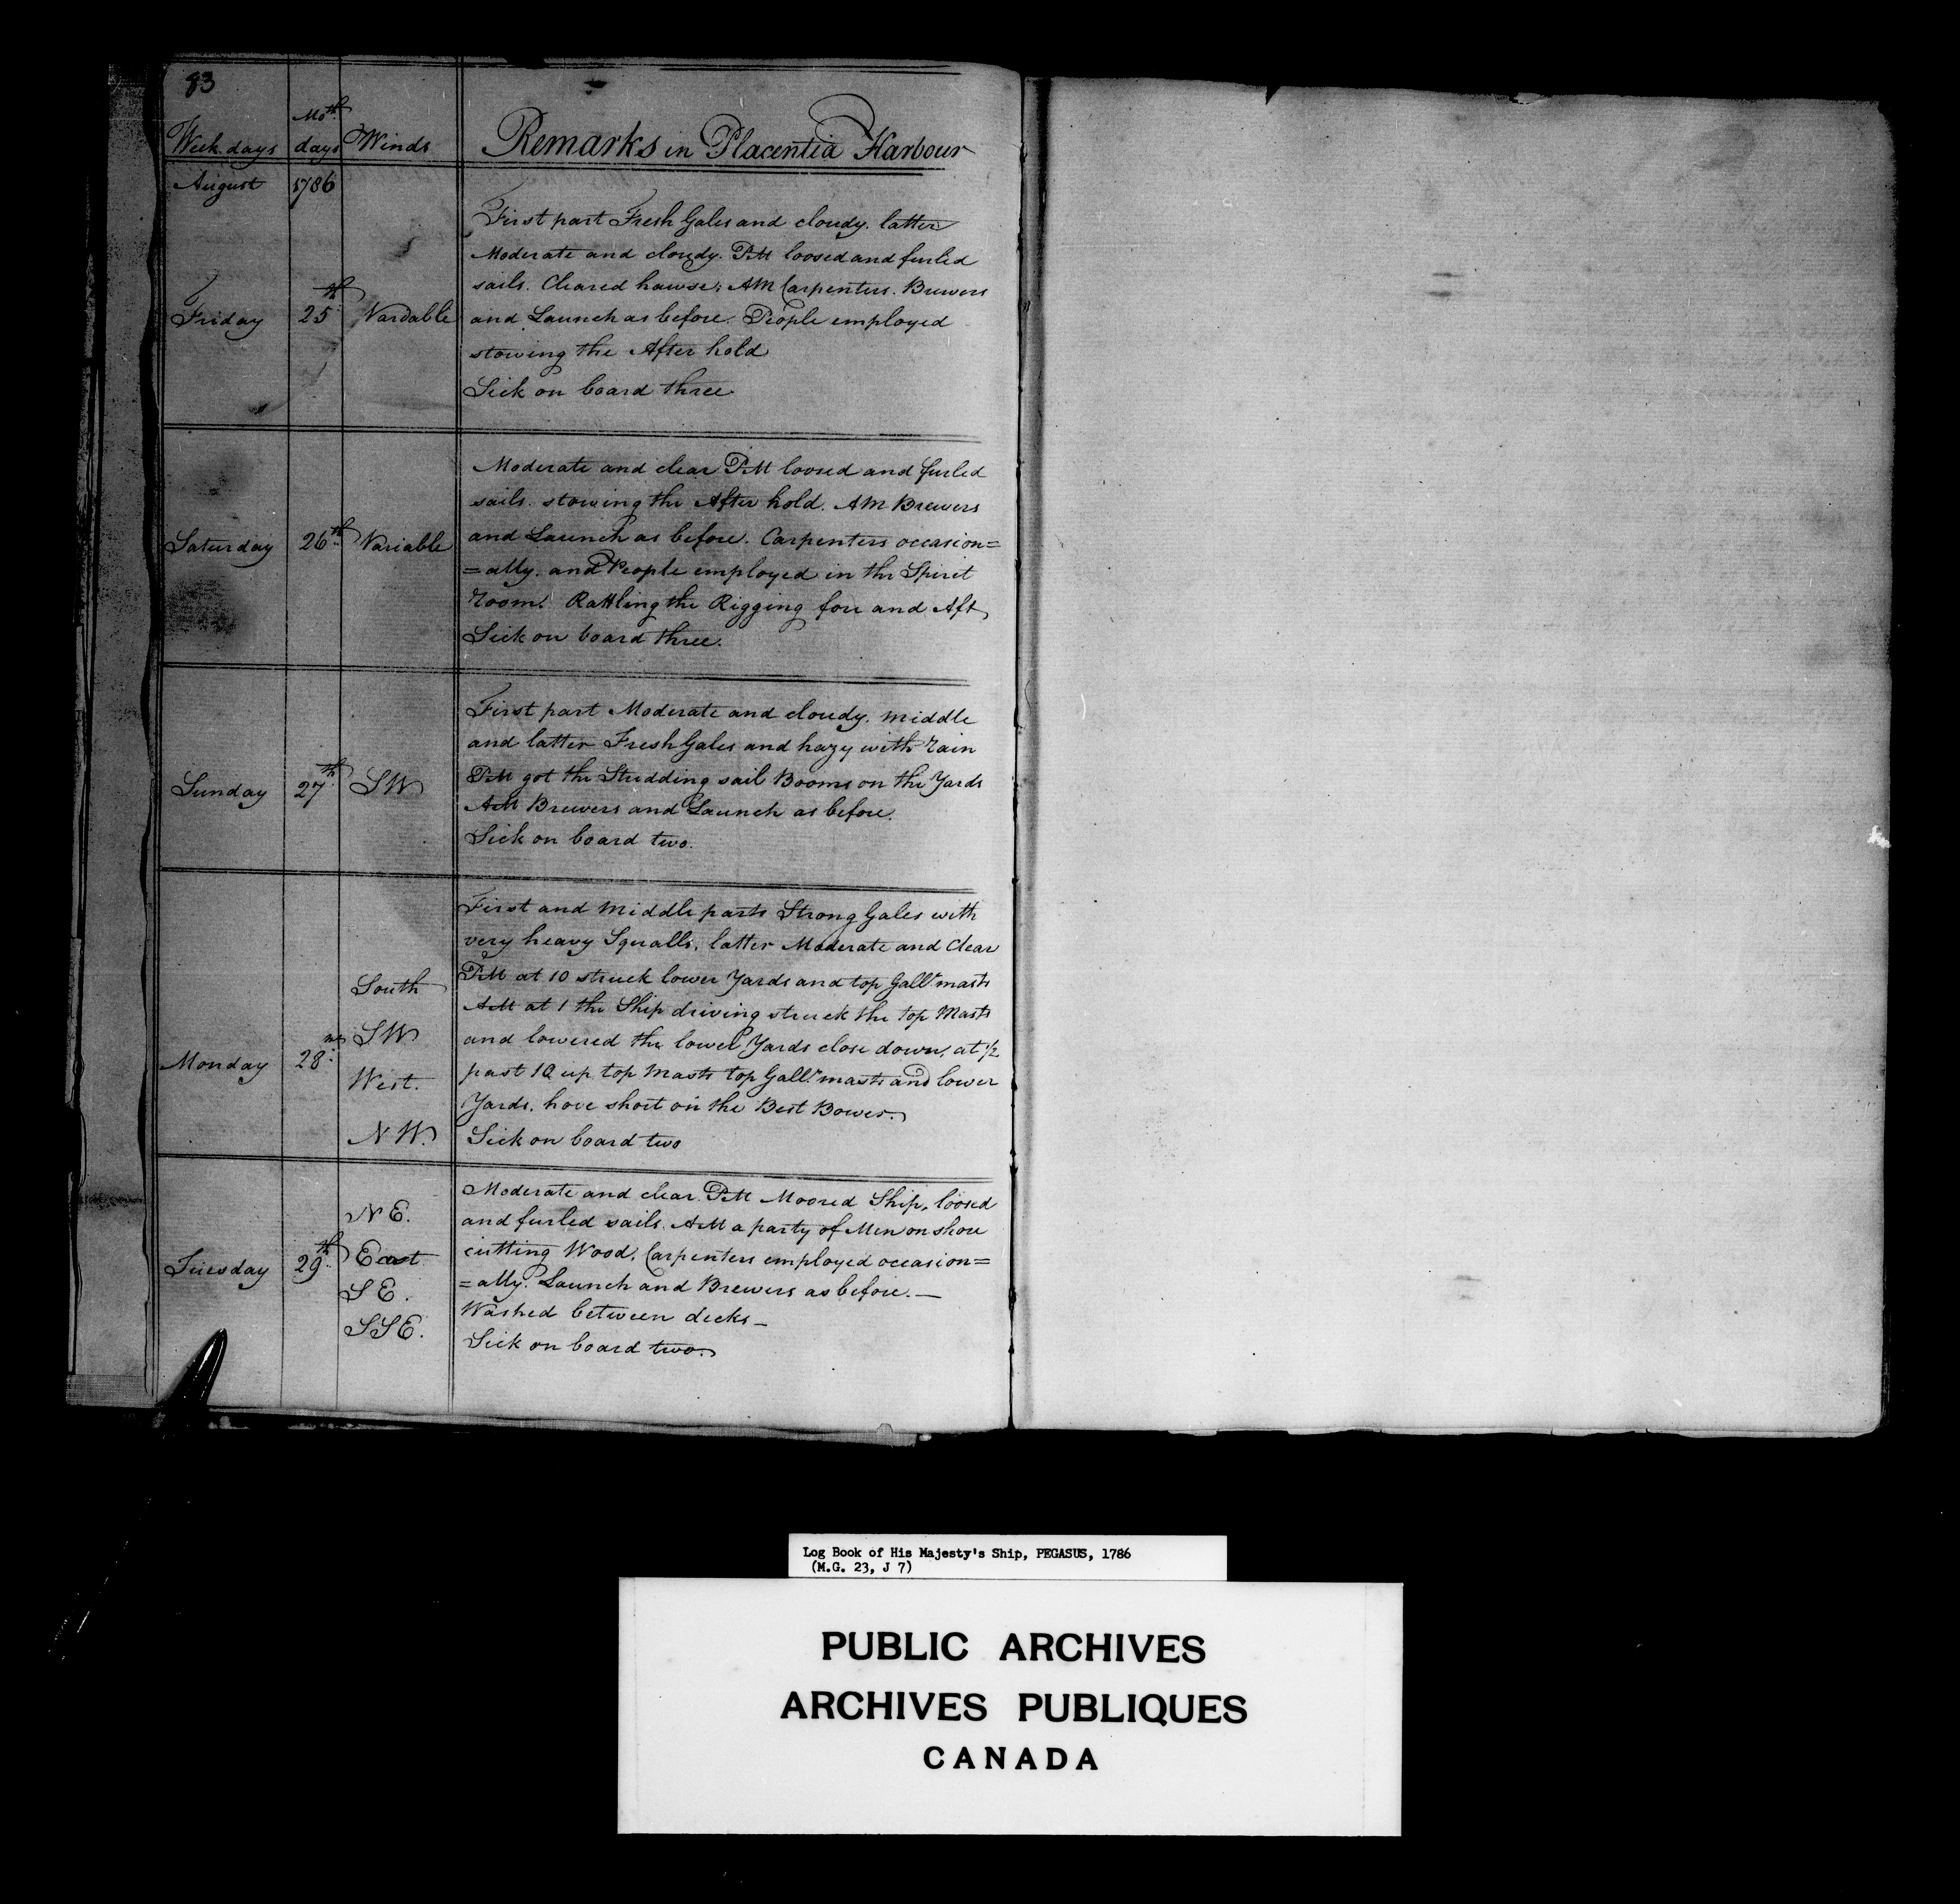 83
Week days Mo.th days Winds Remarks in Placentia Harbour
August 1786
First part Fresh Gales and cloudy. latter
Moderate and cloudy. PM loosed and furled
sails. Cleared hawse; AM Carpenters. Brewers
Friday 25th Variable and Launch as before. People employed
stowing the After hold
Sick on board three
Moderate and clear PM loosed and furled
sails. stowing the After hold. AM Brewers
Saturday 26th Variable and Launch as before. Carpenters occasion=
=ally. and People employed in the Spirit
room. Rattling the Rigging fore and Aft
Sick on board three.
First part Moderate and cloudy. middle
and latter Fresh Gales and hazy with rain
Sunday 27th SW PM got the Studding sail Booms on the Yards
AM Brewers and Launch as before.
Sick on board two.
First and Middle parts Strong Gales with
very heavy Squalls, latter Moderate and Clear
South PM at 10 struck lower Yards and top Gallt masts
AM at 1 the Ship driving struck the top Masts
SW and lowered the lower Yards close down, at 1/2
Monday 28 West. past 10 up top Masts top Gallt masts and lower
Yards. hove short on the Best Bower.
NW. Sick on board two
Moderate and clear PM Moored Ship, loosed
NE. and furled sails. AM a party of Men on shore
Tuesday 29th East cutting Wood, Carpenters employed occasion=
SE. =ally. Launch and Brewers as before.—
SSE. Washed between decks—
Sick on board two.
Log Book of His Majesty's Ship, PEGASUS, 1786
(M.G. 23, J 7)
PUBLIC ARCHIVES
ARCHIVES PUBLIQUES
CANADA